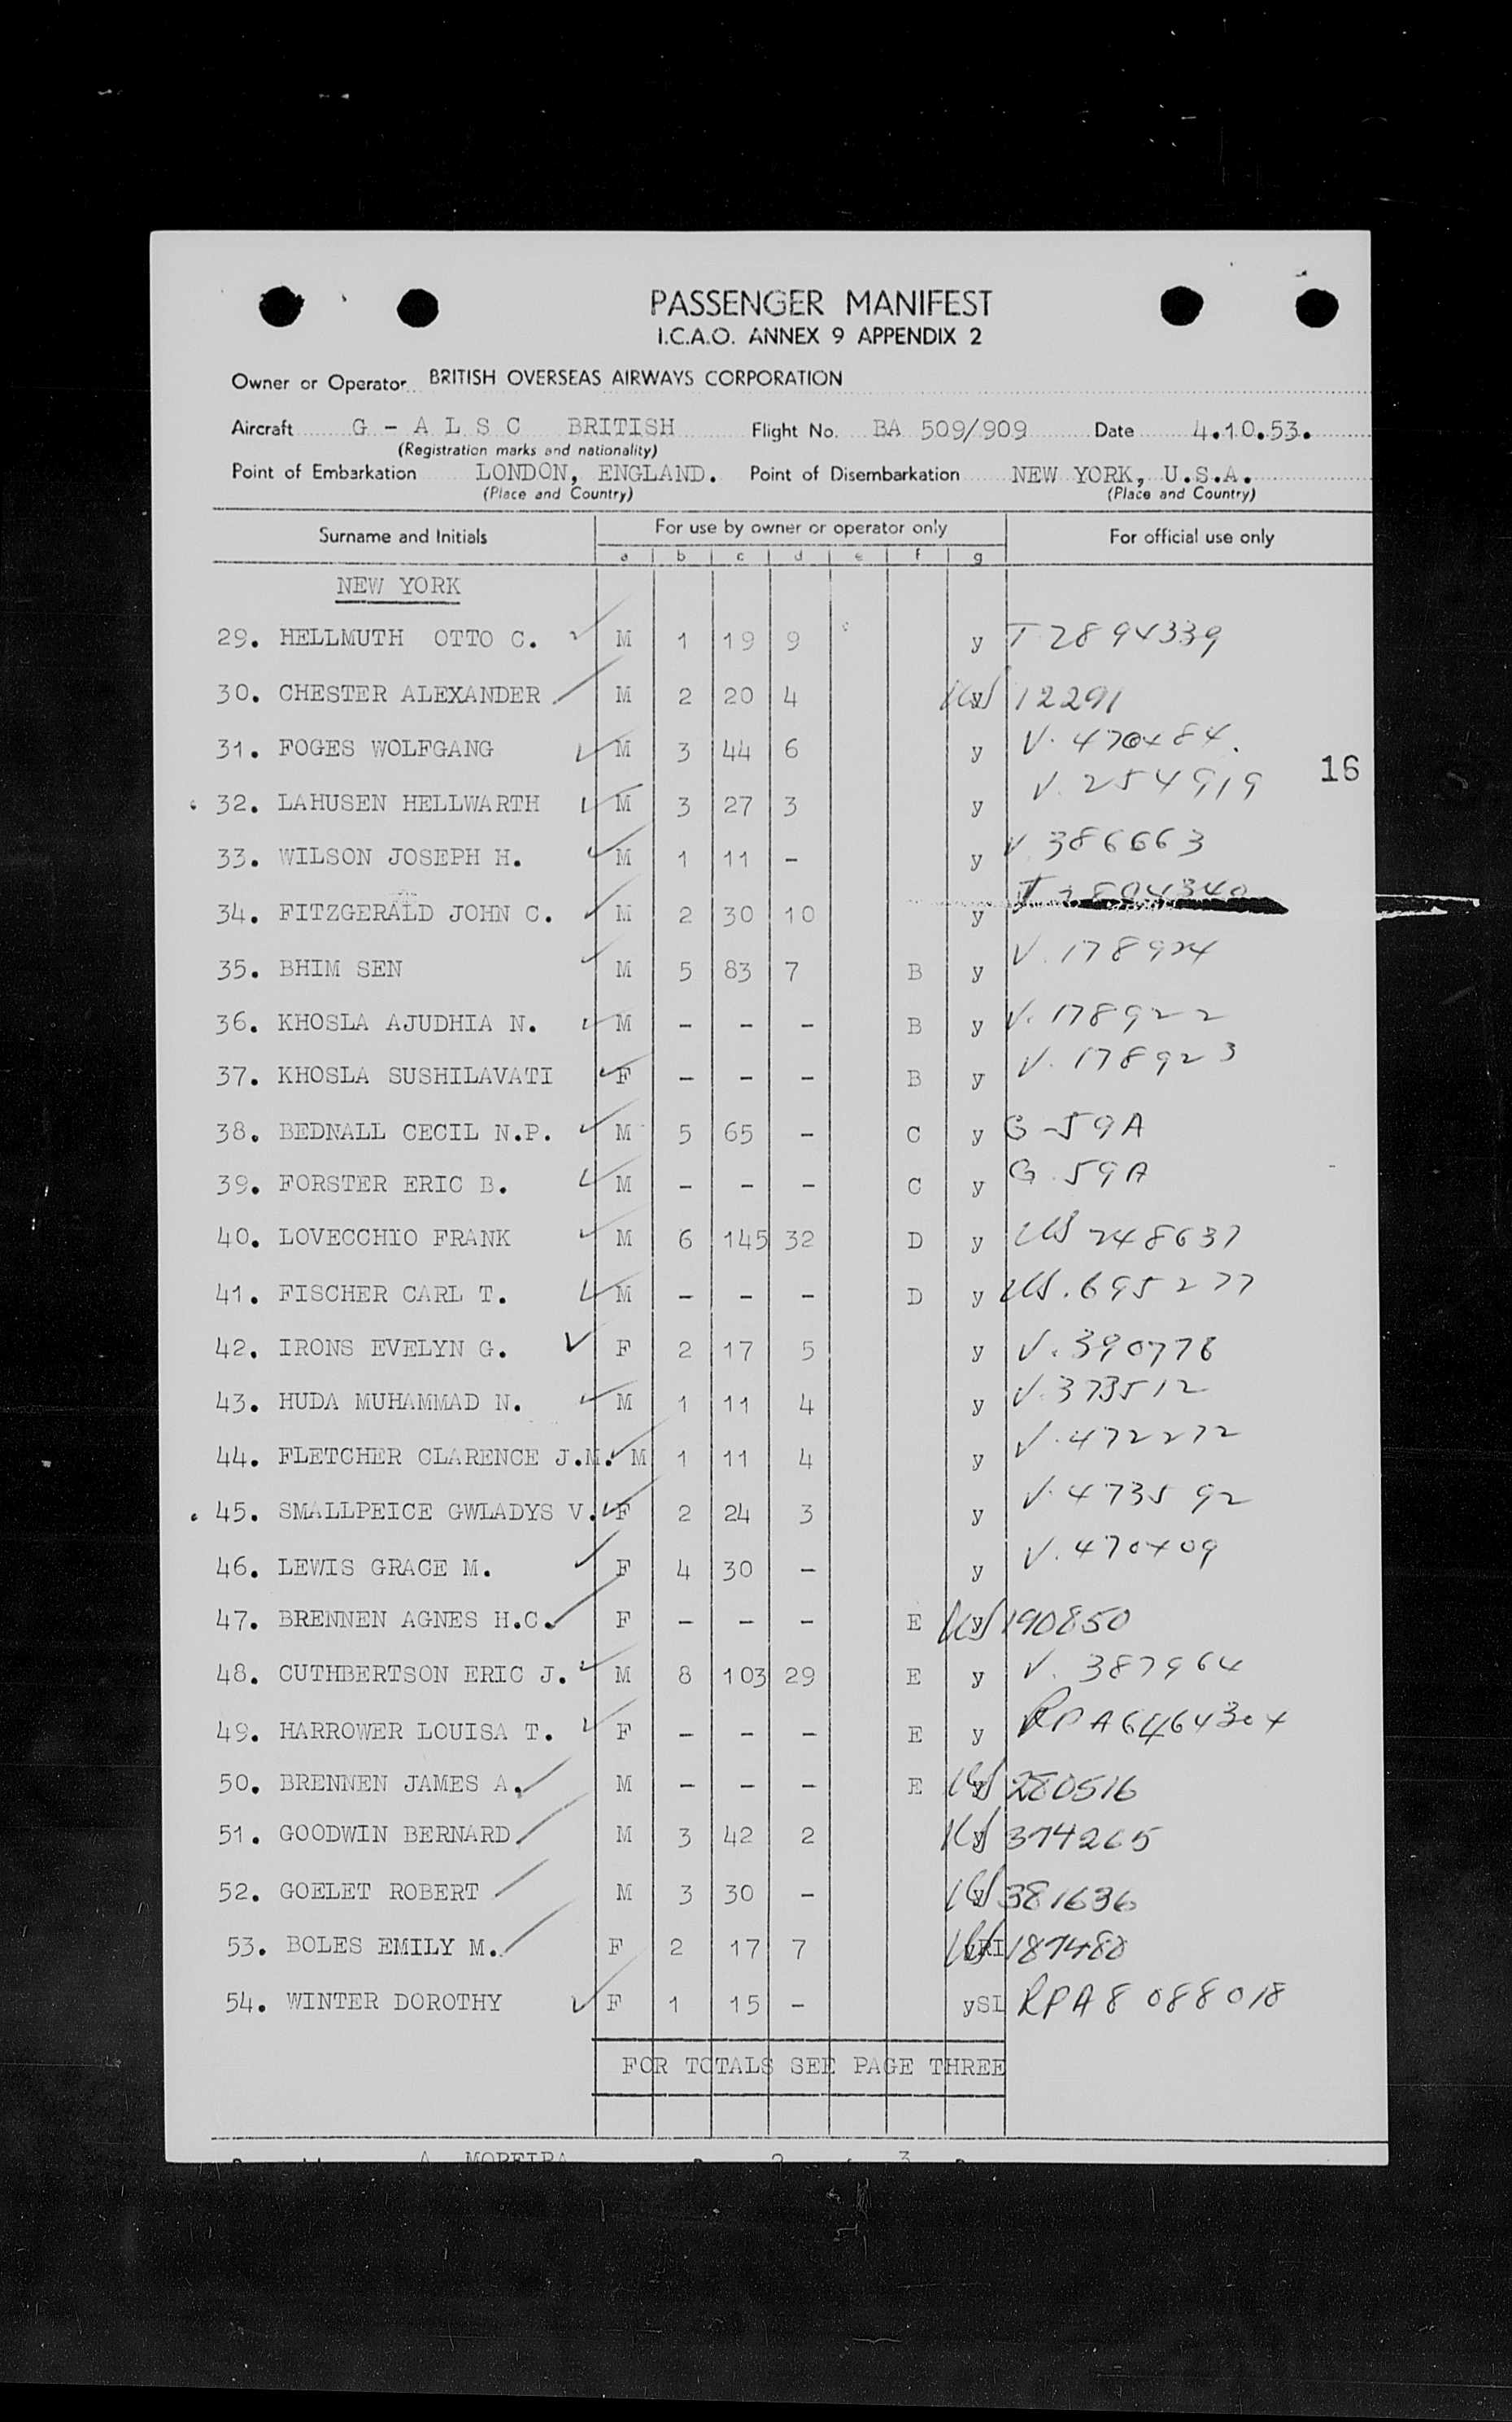 PASSENGER MANIFEST
I.C.A.O. ANNEX 9 APPENDIX 2
Owner or Operator BRITISH OVERSEAS AIRWAYS CORPORATION
Aircraft G - A L S C BRITISH Flight No. BA 509/909 Date 4.10.53.
(Registration marks and nationality)
Point of Embarkation LONDON, ENGLAND. Point of Disembarkation NEW YORK, U.S.A.
(Place and Country) (Place and Country)
Surname and Initials For use by owner or operator only For official use only
a b c d e f g
NEW YORK
29. HELLMUTH OTTO C. M 1 19 9 y T 2894339
30. CHESTER ALEXANDER M 2 20 4 y US 12291
31. FOGES WOLFGANG M 3 44 6 y V. 470484.
16
32. LAHUSEN HELLWARTH M 3 27 3 y V. 254919
33. WILSON JOSEPH H. M 1 11 - y V 386663
34. FITZGERALD JOHN C. M 2 30 10 y
35. BHIM SEN M 5 83 7 B y V. 178924
36. KHOSLA AJUDHIA N. M - - - B y V. 178922
37. KHOSLA SUSHILAVATI F - - - B y V. 178923
38. BEDNALL CECIL N.P. M 5 65 - C y G-59A
39. FORSTER ERIC B. M - - - C y G 59A
40. LOVECCHIO FRANK M 6 145 32 D y US 248637
41. FISCHER CARL T. M - - - D y US. 695277
42. IRONS EVELYN G. F 2 17 5 y V. 390776
43. HUDA MUHAMMAD N. M 1 11 4 y V. 373512
44. FLETCHER CLARENCE J.M. M 1 11 4 y V. 472272
45. SMALLPEICE GWLADYS V. F 2 24 3 y V. 473592
46. LEWIS GRACE M. F 4 30 - y V. 470409
47. BRENNEN AGNES H.C. F - - - E y US 190850
48. CUTHBERTSON ERIC J. M 8 103 29 E y V. 387964
49. HARROWER LOUISA T. F - - - E y RPA6464304
50. BRENNEN JAMES A. M - - - E y US 280516
51. GOODWIN BERNARD M 3 42 2 y US 374265
52. GOELET ROBERT M 3 30 - y US 381636
53. BOLES EMILY M. F 2 17 7 yRI US 187480
54. WINTER DOROTHY F 1 15 - ySL RPA8 088018
FOR TOTALS SEE PAGE THREE
A. MOREIRA 2 3